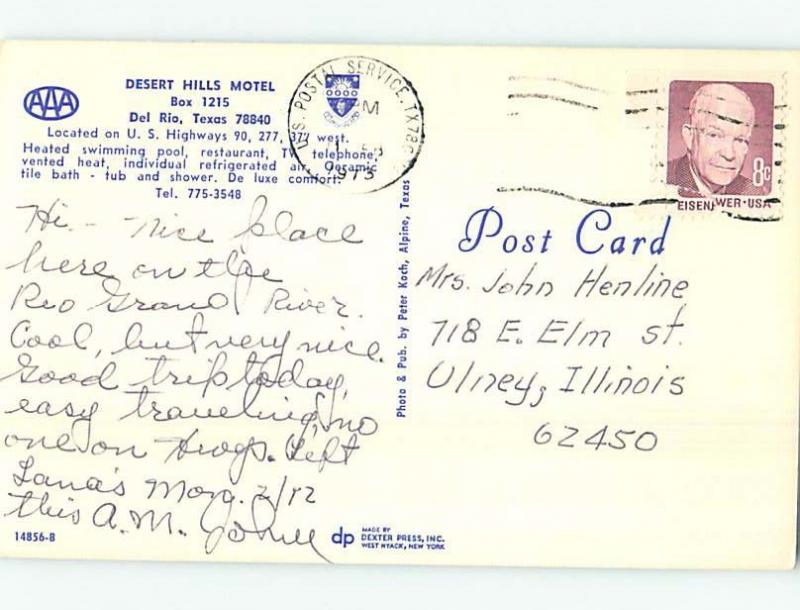 AAA
DESERT HILLS MOTEL
Box 1215
Del Rio, Texas 78840
Located on U. S. Highways 90, 277, 377 west.
Heated swimming pool, restaurant, TV, telephone,
vented heat, individual refrigerated air. Ceramic
tile bath - tub and shower. De luxe comfort.
Tel. 775-3548
U.S. POSTAL SERVICE, TX 78
PM
1973
EISENHOWER·USA
8c
Hi - Nice place
here on the
Rio Grand River.
Cool, but very nice.
Good trip today,
easy traveling, no
one on Hwys. Left
Lana's Mon. 2/12
this A.M.
Photo & Pub. by Peter Koch, Alpine, Texas
Post Card
Mrs. John Henline
718 E. Elm St.
Olney, Illinois
62450
14856-B
dp
MADE BY
DEXTER PRESS, INC.
WEST NYACK, NEW YORK